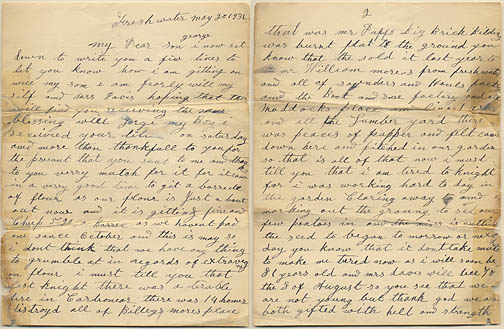 Freshwater may 20 1932
george
my Dear son i now set
down to write you a fiw lines to
let you know how i am gitting on
wie my son i am fearly will my
silf and mrs Davis hopping that this
will find you receiving the same
blessing will Jorge my boy i
received your letter on saturday
and more then thankfull to you for
the present that you sent to me and
to you verry mutch for it for it come
in a very good time to git a barrell
of flour as our flour is just about
out now and it is gitting fine and
cheap a barrel as we havent paid
since October and this is may so
i dont think that we have any thing
to grumble at in regords of
on flour i must tell you that
last knight there was a terable
fire in Carbonear there was 14 homes
destroyd all of Billeys mores place
2
that was mr Duffs big Brick Bilding
was burnt flat to the ground you
know that the sold it last year to
mr William mores from freshwater
and all of and places
and the boot and sue factory and
maddocks place
and all the lumber yard there
was peaces of peapper and felt cam
down here and pitched in our garden
so that is all of that now i must
till you that i am tered to knight
for i was working hard to day in
the garden Claring away and
working out the ground to sed our
fiw poatoes in
the seed is to morrow or any
day you know that it dont take mutch
to make me tired now as i will soon be
81 years old and mrs davis will bee 70
the 8 of August so you see that we
are not young but thank god we are
both gifted with helt and strength